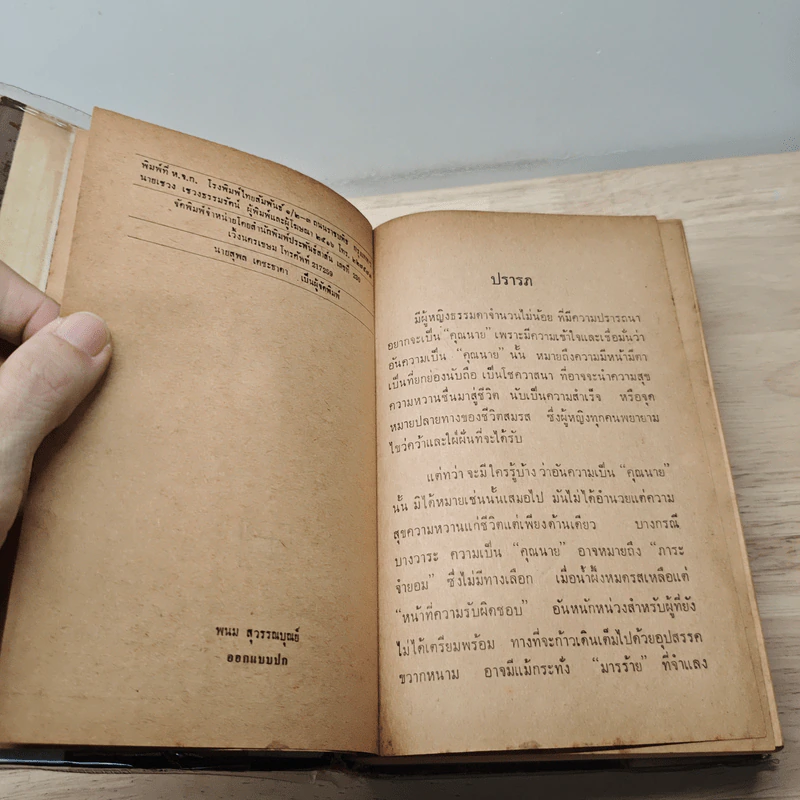 พิมพ์ที่ ห.จ.ก. โรงพิมพ์ไทยสัมพันธ์ ๑/๒-๓ ถนนราชบพิธ
นายเชวง เชวงธรรมรัตน์ ผู้พิมพ์และผู้โฆษณา ๒๕๑๖ โทร.
จัดพิมพ์จำหน่ายโดยสำนักพิมพ์ประพันธ์สาส์น เลขที่ 220
เวิ้งนครเขษม โทรศัพท์ 217259
นายสุพล เตชะธาดา เป็นผู้จัดพิมพ์
พนม สุวรรณบุณย์
ออกแบบปก
ปรารภ
มีผู้หญิงธรรมดาจำนวนไม่น้อย ที่มีความปรารถนา
อยากจะเป็น “คุณนาย” เพราะมีความเข้าใจและเชื่อมั่นว่า
อันความเป็น “คุณนาย” นั้น หมายถึงความมีหน้ามีตา
เป็นที่ยกย่องนับถือ เป็นโชควาสนา ที่อาจจะนำความสุข
ความหวานชื่นมาสู่ชีวิต นับเป็นความสำเร็จ หรือจุด
หมายปลายทางของชีวิตสมรส ซึ่งผู้หญิงทุกคนพยายาม
ไขว่คว้าและใฝ่ฝันที่จะได้รับ
แต่ทว่า จะมีใครรู้บ้าง ว่าอันความเป็น “คุณนาย”
นั้น มิได้หมายเช่นนั้นเสมอไป มันไม่ได้อำนวยแต่ความ
สุขความหวานแก่ชีวิตแต่เพียงด้านเดียว บางกรณี
บางวาระ ความเป็น “คุณนาย” อาจหมายถึง “ภาระ
จำยอม” ซึ่งไม่มีทางเลือก เมื่อน้ำผึ้งหมดรสเหลือแต่
“หน้าที่ความรับผิดชอบ” อันหนักหน่วงสำหรับผู้ที่ยัง
ไม่ได้เตรียมพร้อม ทางที่จะก้าวเดินเต็มไปด้วยอุปสรรค
ขวากหนาม อาจมีแม้กระทั่ง “มารร้าย” ที่จำแลง